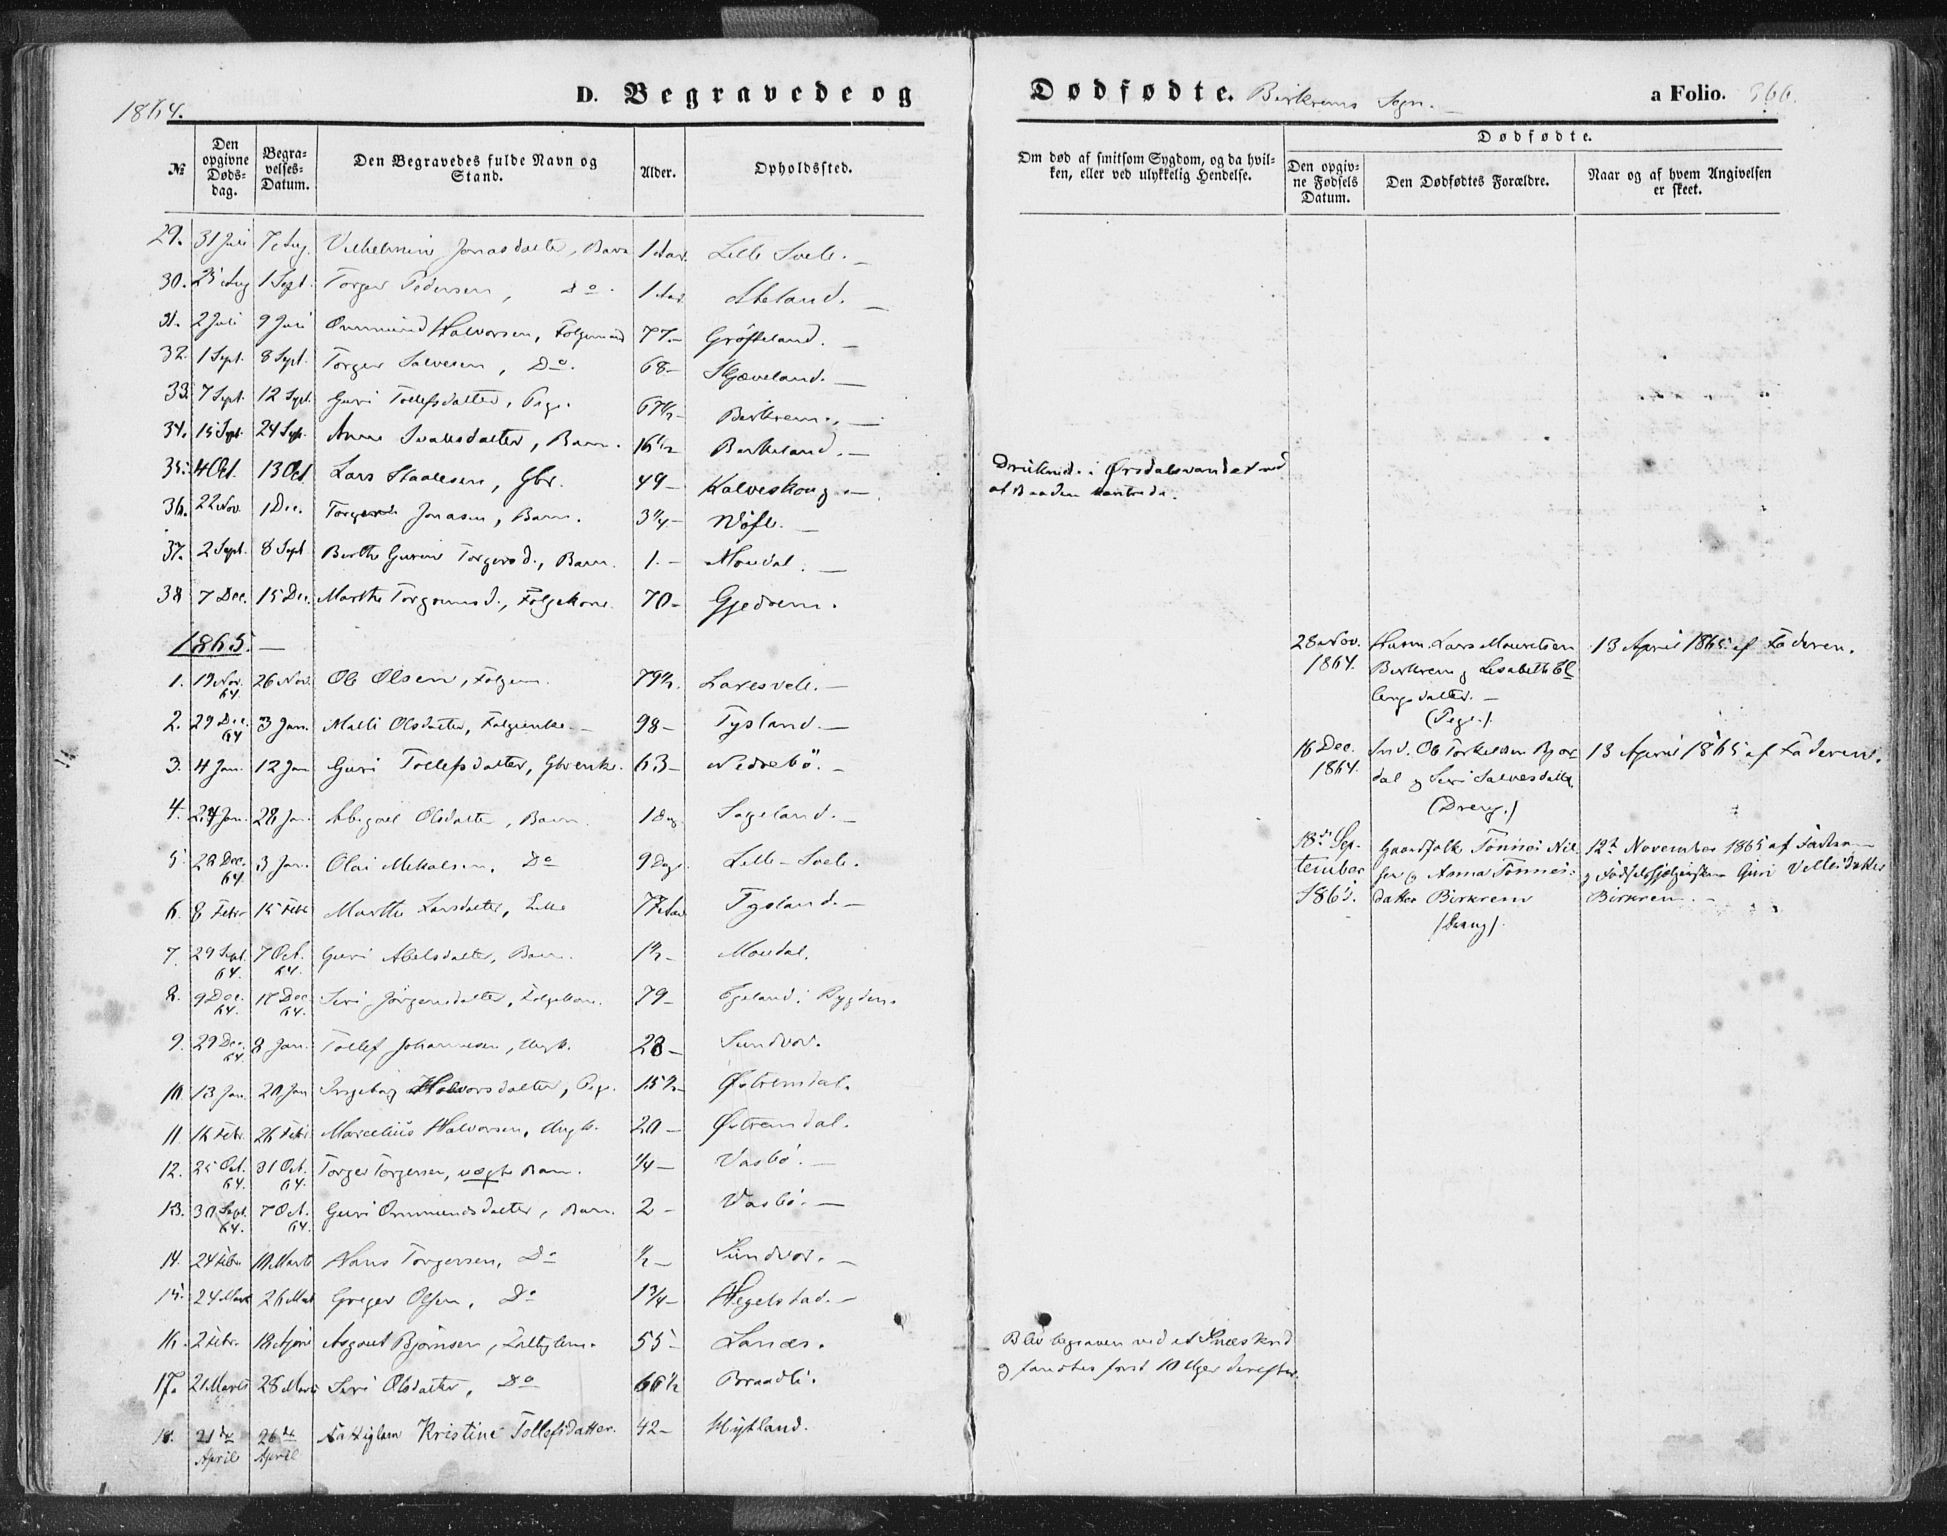 1864.
D. Begravede og Dødfødte. Birkrems Sogn. a Folio. 366.
№ | Den opgivne Døds-dag. | Begra-velses-Datum. | Den Begravedes fulde Navn og Stand. | Alder. | Opholdssted. | Om død af smitsom Sygdom, og da hvil-ken, eller ved ulykkelig Hendelse. | Dødfødte.
Den opgiv-ne Fødsels Datum. | Den Dødfødtes Forældre. | Naar og af hvem Angivelsen er skeet.
29. 31 Juli 7 Aug. Vilhelmine Jonasdatter, Barn 1 Aar. Lille Svele.
30. 25 Aug 1 Sept. Torger Pedersen, Do. 1 Aar
31. 2 Juli 9 Juli Ommund Halvorsen, Følgemand 77 Grøfteland.
32. 1 Sept. 8 Sept. Torger Salvesen, Do. 68 Skjæveland.
33. 7 Sept. 12 Sept. Guri Tollefsdatter, Pige. 67½ Birkrem.
34. 15 Sept. 24 Sept. Anne Svalesdatter, Barn. 16½ Birkeland.
35. 4 Oct. 13 Oct Lars Staalesen, Gbr. 49 Kalveskoug Druknede i Ørsdalsvandet ved
at Baaden kantrede.
36. 22 Nov. 1 Dec. Jonasen, Barn. 3¼ Nøfle.
37. 2 Sept. 8 Sept Berthe Gurine Torgersd., Barn. 1. Moudal.
38 7 Dec. 15 Dec. Marthe Torgrimsd., Følgekone. 70 Gjedrem.
1865.
1. 19 Nov. 64 26 Nov. Ole Olsen, Følgem. 79½ Laresvele.
2. 29 Dec. 64 3 Jan. Malli Olsdatter, Følgeenke. 98 Tysland.
3. 4 Jan. 12 Jan Guri Tollefsdatter, Gbrenke. 63 Nedrebö.
4. 24 Jan. 28 Jan. Abigael Olsdatter, Barn. 1 Dag Sageland.
5. 28 Dec. 64 3 Jan. Olai Mikalsen, Do 9 Dage Lille-Svele.
6. 8 Febr 15 Febr Marthe Larsdatter, Enke 77 Aar Tysland.
7. 29 Sept. 64. 7 Oct. 64. Guri Abelsdatter, Barn. 1½ Moudal.
8. 9 Dec. 64. 17 Dec 64. Siri Jörgensdatter, Følgekone. 79 Egeland i Bygden.
9. 29 Dec. 64 8 Jan. Tollef Johannesen, Ungk. 28 Sundvor.
10. 13 Jan. 20 Jan Ingeborg Halvorsdatter, Pige. 15½ Østremdal.
11. 16 Febr. 26 Febr Marcelius Halvorsen, Ungk. 20 Østremdal.
12. 25 Oct. 64 31 Oct. 64. Torger Torgersen, uægte Barn. ¼ Vasbö.
13. 30 Sept. 64. 7 Oct. 64. Guri Ommundsdatter, Barn. 2 Vasbö.
14. 24 Febr 10 Marts Hans Torgersen, Do ½ Sundvor.
15. 24 Mart 26 Mart Greger Olsen, Do 1¾ Hegelstad.
16. 2 Febr. 18 April Asgaut Bjørnsen, Fattiglem. 55 Lanæs. Blev begraven ved et Sneeskred
og fandtes først 10 Uger derefter.
17. 21 Marts 28 Marts Siri Olsdatter, Do 66½ Braadli.
18. 21de April 26de April Fattiglem Kristine Tollefsdatter. 42 Hytland.
28 Nov. 1864. Husm. Lars Mauritsen Birkrem og Lisabeth El-lingsdatter. (Pige.) 13 April 1865 af Faderen.
16 Dec. 1864. Ind. Ole Torkelsen Bjor-dal og Siri Salvesdatter. (Dreng.) 13 April 1865 af Faderen.
18de Sep-tember 1865. Gaardfolk Tönnes Nil-sen og Anna Tönnes-datter Birkrem (Dreng). 12te November 1865 af Faderen
og Fødselshjælpersken Guri Vellesdatter
Birkrem.